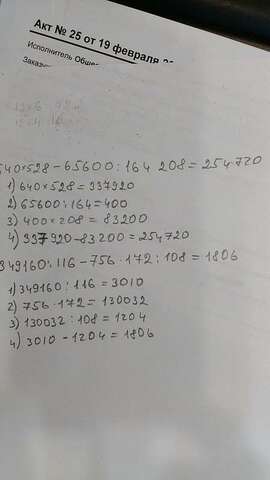 Акт № 25 от 19 февраля
Исполнитель Обще
Заказчи
640×528-65600:164 208=254720
1) 640×528=337920
2) 65600:164=400
3) 400×208=83200
4) 337920-83200=254720
349160:116-756·172:108=1806
1) 349160:116=3010
2) 756·172=130032
3) 130032:108=1204
4) 3010-1204=1806